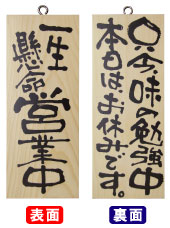 一生
懸命
営業中
只今、味の勉強中
本日は、お休みです。
表面
裏面